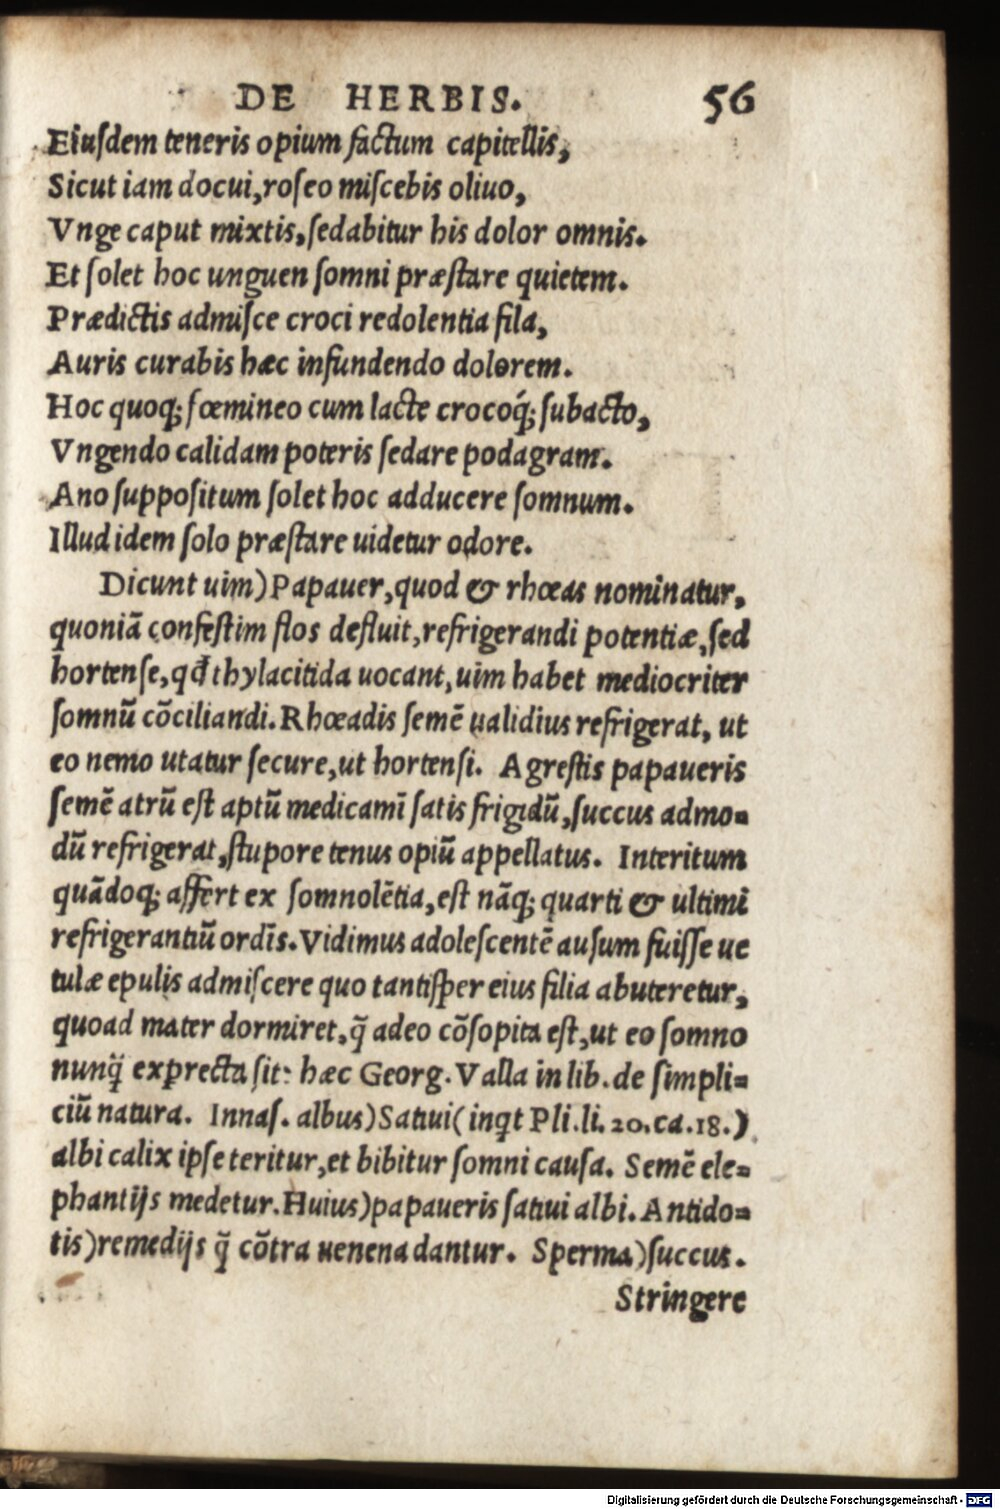 DE HERBIS. 56
Eiuſdem teneris opium factum capitellis,
Sicut iam docui, roſeo miſcebis oliuo,
Vnge caput mixtis, ſedabitur his dolor omnis.
Et ſolet hoc unguen ſomni præſtare quietem.
Prædictis admiſce croci redolentia fila,
Auris curabis hæc infundendo dolorem.
Hoc quoq; fœmineo cum lacte crocoq́; ſubacto,
Vngendo calidam poteris ſedare podagram.
Ano ſuppoſitum ſolet hoc adducere ſomnum.
Illud idem ſolo præſtare uidetur odore.
Dicunt uim) Papauer, quod & rhœas nominatur,
quoniã confeſtim flos defluit, refrigerandi potentiæ, ſed
hortenſe, qđ thylacitida uocant, uim habet mediocriter
ſomnũ cõciliandi. Rhœadis ſemẽ ualidius refrigerat, ut
eo nemo utatur ſecure, ut hortenſi. Agreſtis papaueris
ſemẽ atrũ eſt aptũ medicamĩ ſatis frigidũ, ſuccus admo⸗
dũ refrigerat, ſtupore tenus opiũ appellatus. Interitum
quãdoq; affert ex ſomnolẽtia, eſt nãq; quarti & ultimi
refrigerantiũ ordĩs. Vidimus adoleſcentẽ auſum fuiſſe ue
tulæ epulis admiſcere quo tantiſper eius filia abuteretur,
quoad mater dormiret, q̃ adeo cõſopita eſt, ut eo ſomno
nunq̃ exprecta ſit: hæc Georg. Valla in lib. de ſimpli⸗
ciũ natura. Innaſ. albus) Satiui (inqt Pli. li. 20. ca. 18.)
albi calix ipſe teritur, et bibitur ſomni cauſa. Semẽ ele⸗
phantijs medetur. Huius) papaueris ſatiui albi. Antido⸗
tis) remedijs q̃ cõtra uenena dantur. Sperma) ſuccus.
Stringere
Digitalisierung gefördert durch die Deutsche Forschungsgemeinschaft - DFG